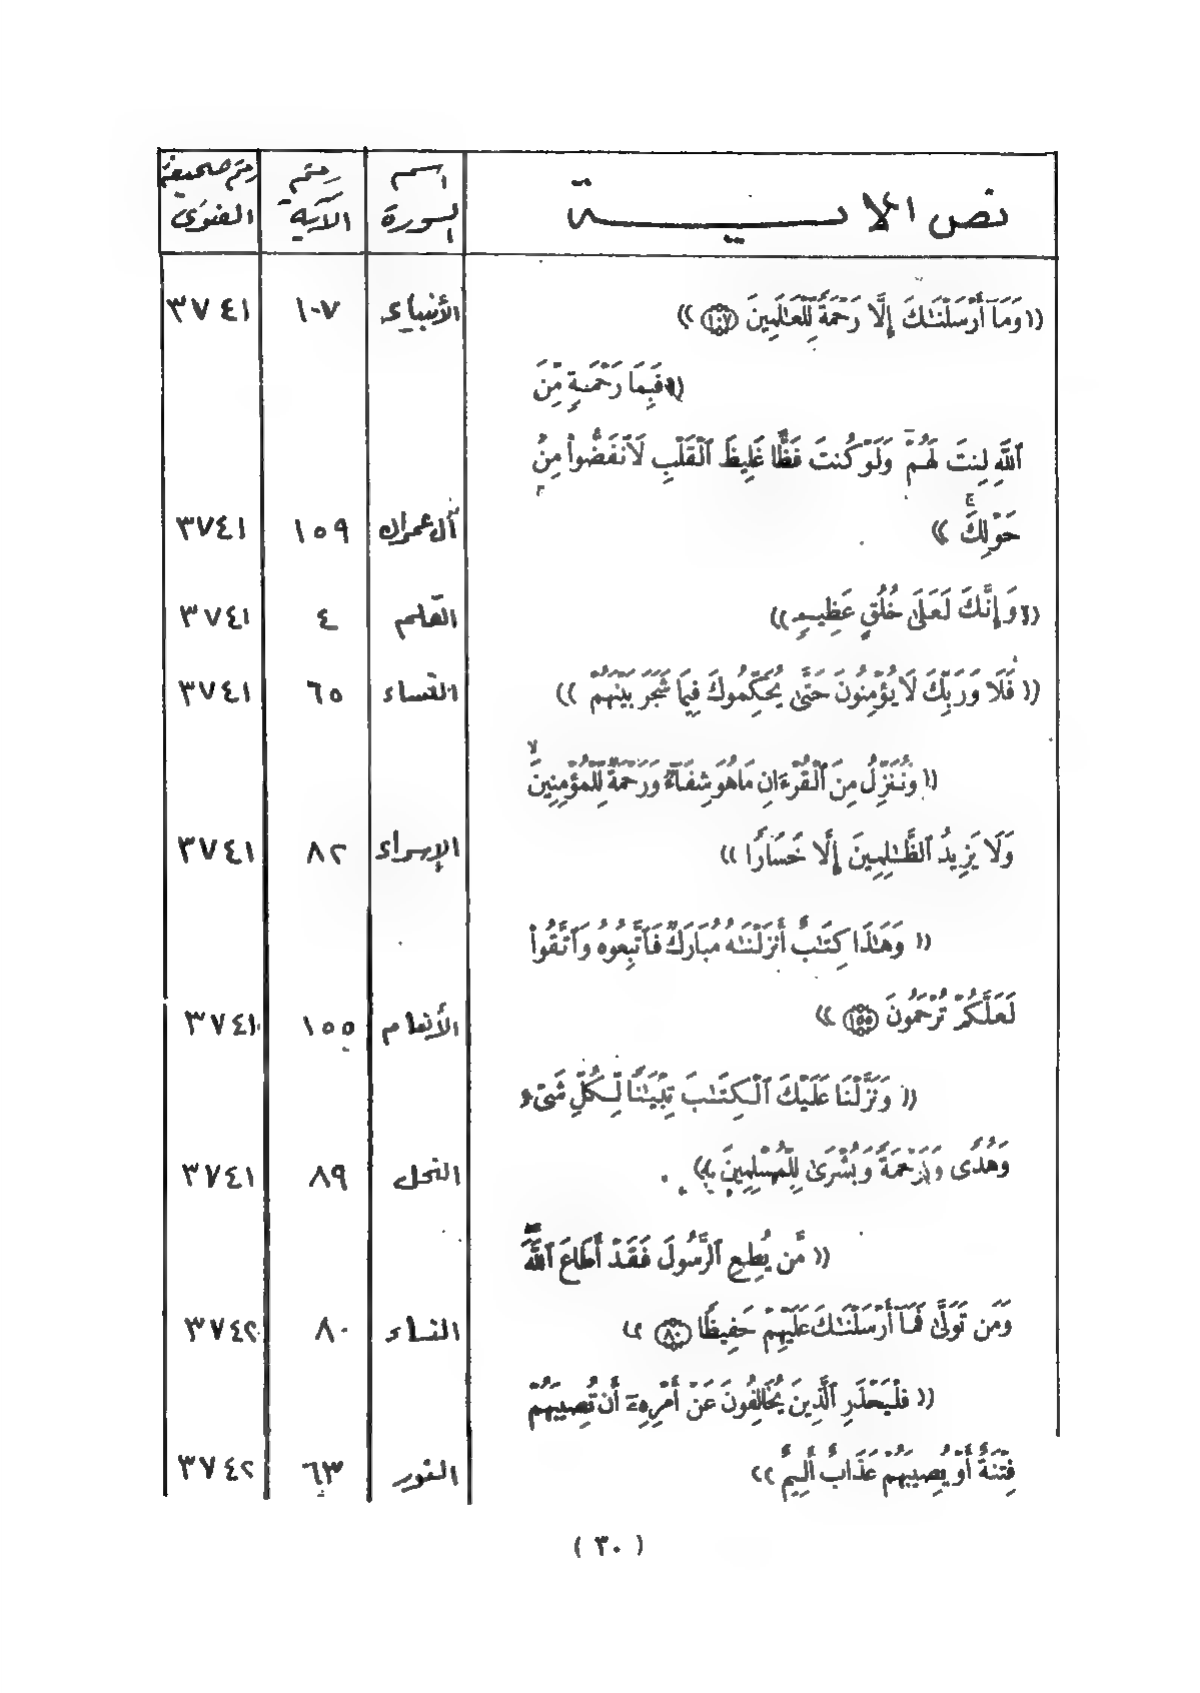 نص الآيـــــة اسم السورة رقم الآية رقم صحيفة الفتوى
(( وَمَآ أَرْسَلْنَـٰكَ إِلَّا رَحْمَةً لِّلْعَـٰلَمِينَ ١٠٧ )) الأنبياء ١٠٧ ٣٧٤١
(( فَبِمَا رَحْمَةٍ مِّنَ
ٱللَّهِ لِنتَ لَهُمْ وَلَوْ كُنتَ فَظًّا غَلِيظَ ٱلْقَلْبِ لَٱنفَضُّوا۟ مِنْ
حَوْلِكَ )) آل عمران ١٥٩ ٣٧٤١
(( وَإِنَّكَ لَعَلَىٰ خُلُقٍ عَظِيمٍ )) القلم ٤ ٣٧٤١
(( فَلَا وَرَبِّكَ لَا يُؤْمِنُونَ حَتَّىٰ يُحَكِّمُوكَ فِيمَا شَجَرَ بَيْنَهُمْ )) النساء ٦٥ ٣٧٤١
(( وَنُنَزِّلُ مِنَ ٱلْقُرْءَانِ مَا هُوَ شِفَآءٌ وَرَحْمَةٌ لِّلْمُؤْمِنِينَ ۙ
وَلَا يَزِيدُ ٱلظَّـٰلِمِينَ إِلَّا خَسَارًا )) الإسراء ٨٢ ٣٧٤١
(( وَهَـٰذَا كِتَـٰبٌ أَنزَلْنَـٰهُ مُبَارَكٌ فَٱتَّبِعُوهُ وَٱتَّقُوا۟
لَعَلَّكُمْ تُرْحَمُونَ ١٥٥ )) الأنعام ١٥٥ ٣٧٤١
(( وَنَزَّلْنَا عَلَيْكَ ٱلْكِتَـٰبَ تِبْيَـٰنًا لِّكُلِّ شَىْءٍ
وَهُدًى وَرَحْمَةً وَبُشْرَىٰ لِلْمُسْلِمِينَ )) النحل ٨٩ ٣٧٤١
(( مَّن يُطِعِ ٱلرَّسُولَ فَقَدْ أَطَاعَ ٱللَّهَ
وَمَن تَوَلَّىٰ فَمَآ أَرْسَلْنَـٰكَ عَلَيْهِمْ حَفِيظًا ٨٠ )) النساء ٨٠ ٣٧٤٢
(( فَلْيَحْذَرِ ٱلَّذِينَ يُخَالِفُونَ عَنْ أَمْرِهِۦٓ أَن تُصِيبَهُمْ
فِتْنَةٌ أَوْ يُصِيبَهُمْ عَذَابٌ أَلِيمٌ )) النور ٦٣ ٣٧٤٢
( ٣٠ )